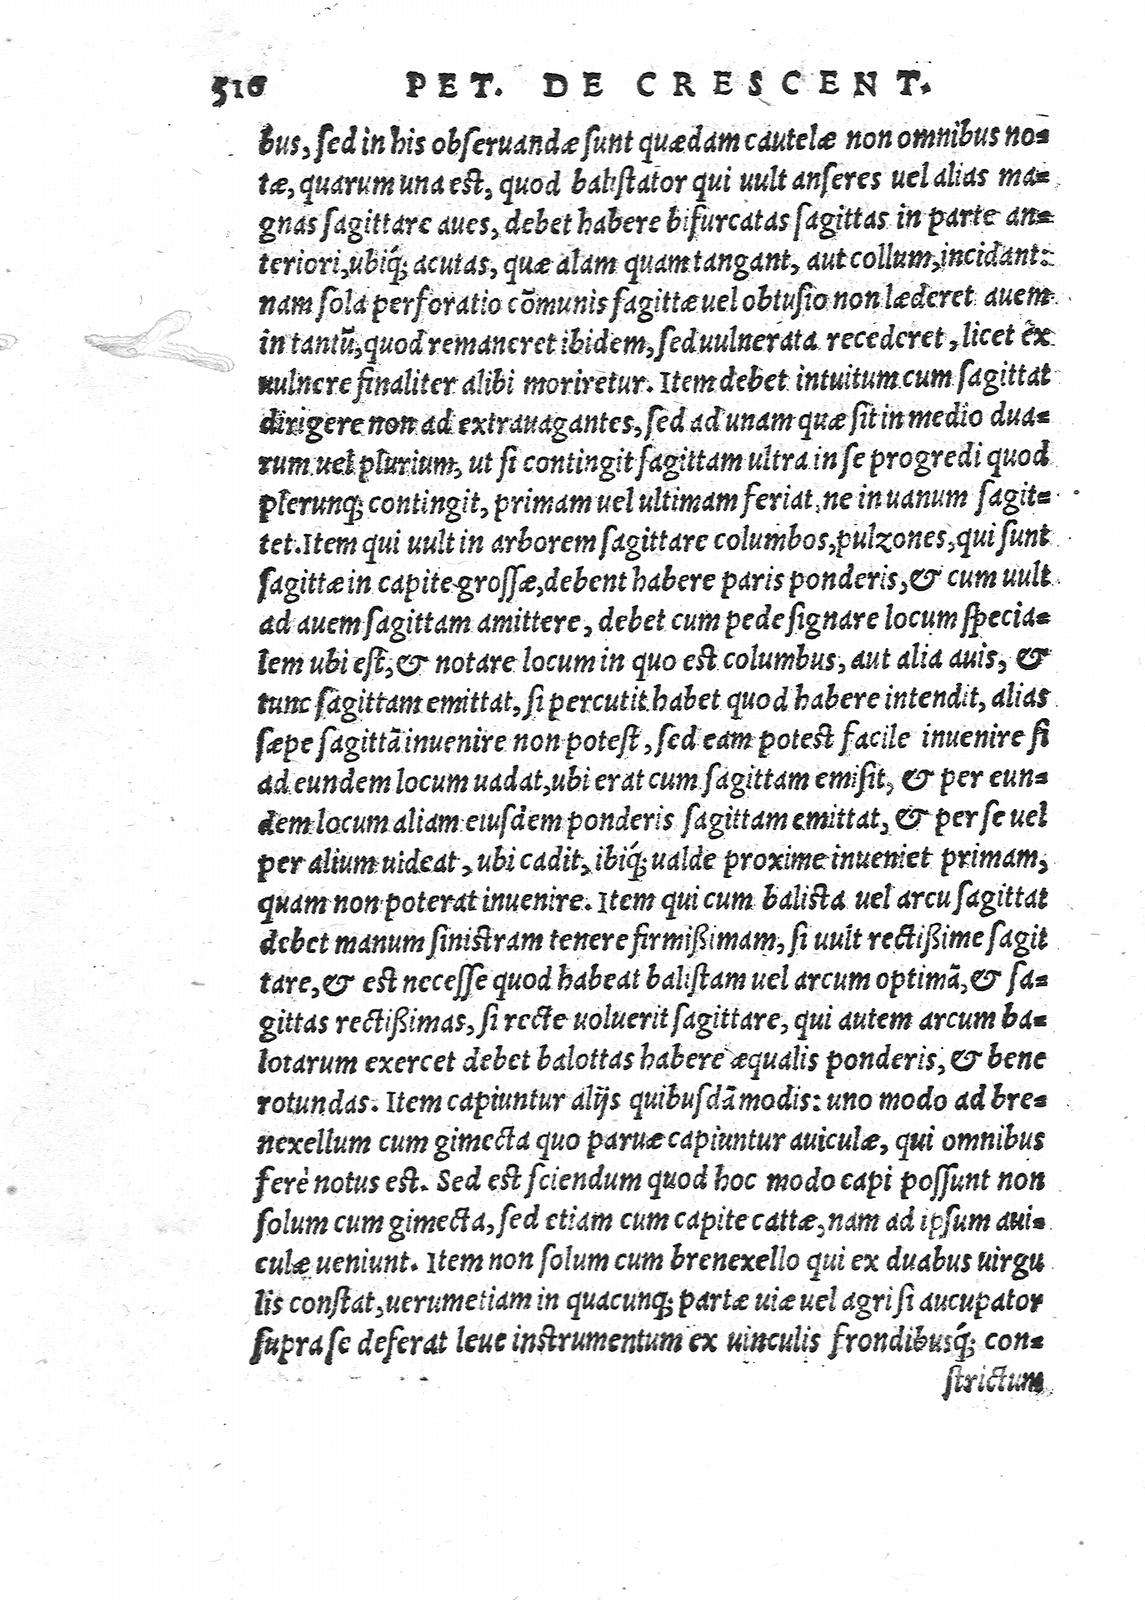 516 PET. DE CRESCENT.
bus, ſed in his obſeruandæ ſunt quædam cautelæ non omnibus no=
tæ, quarum una est, quod baliſtator qui uult anſeres uel alias ma=
gnas ſagittare aues, debet habere bifurcatas ſagittas in parte an=
teriori, ubiq́; acutas, quæ alam quam tangant, aut collum, incidant:
nam ſola perforatio cōmunis ſagittæ uel obtuſio non læderet auem
in tantū, quod remaneret ibidem, ſed uulnerata recederet, licet ex
uulnere finaliter alibi moriretur. Item debet intuitum cum ſagittat
dirigere non ad extrauagantes, ſed ad unam quæ ſit in medio dua=
rum uel plurium, ut ſi contingit ſagittam ultra in ſe progredi quod
plerunq; contingit, primam uel ultimam feriat, ne in uanum ſagit=
tet. Item qui uult in arborem ſagittare columbos, pulzones, qui ſunt
ſagittæ in capite groſſæ, debent habere paris ponderis, & cum uult
ad auem ſagittam amittere, debet cum pede ſignare locum ſpecia=
lem ubi eſt, & notare locum in quo est columbus, aut alia auis, &
tunc ſagittam emittat, ſi percutit habet quod habere intendit, alias
ſæpe ſagittā inuenire non poteſt, ſed eam potest facile inuenire ſi
ad eundem locum uadat, ubi erat cum ſagittam emiſit, & per eun=
dem locum aliam eiuſdem ponderis ſagittam emittat, & per ſe uel
per alium uideat, ubi cadit, ibiq́; ualde proxime inueniet primam,
quam non poterat inuenire. Item qui cum balista uel arcu ſagittat
debet manum ſinistram tenere firmißimam, ſi uult rectißime ſagit
tare, & est neceſſe quod habeat baliſtam uel arcum optimā, & ſa=
gittas rectißimas, ſi recte uoluerit ſagittare, qui autem arcum ba=
lotarum exercet debet balottas habere æqualis ponderis, & bene
rotundas. Item capiuntur alijs quibuſdā modis: uno modo ad bre=
nexellum cum gimecta quo paruæ capiuntur auiculæ, qui omnibus
ferè notus est. Sed est ſciendum quod hoc modo capi poſſunt non
ſolum cum gimecta, ſed etiam cum capite cattæ, nam ad ipſum aui=
culæ ueniunt. Item non ſolum cum brenexello qui ex duabus uirgu
lis conſtat, uerumetiam in quacunq; partæ uiæ uel agri ſi aucupator
ſupra ſe deferat leue instrumentum ex uinculis frondibusq́; con=
strictum